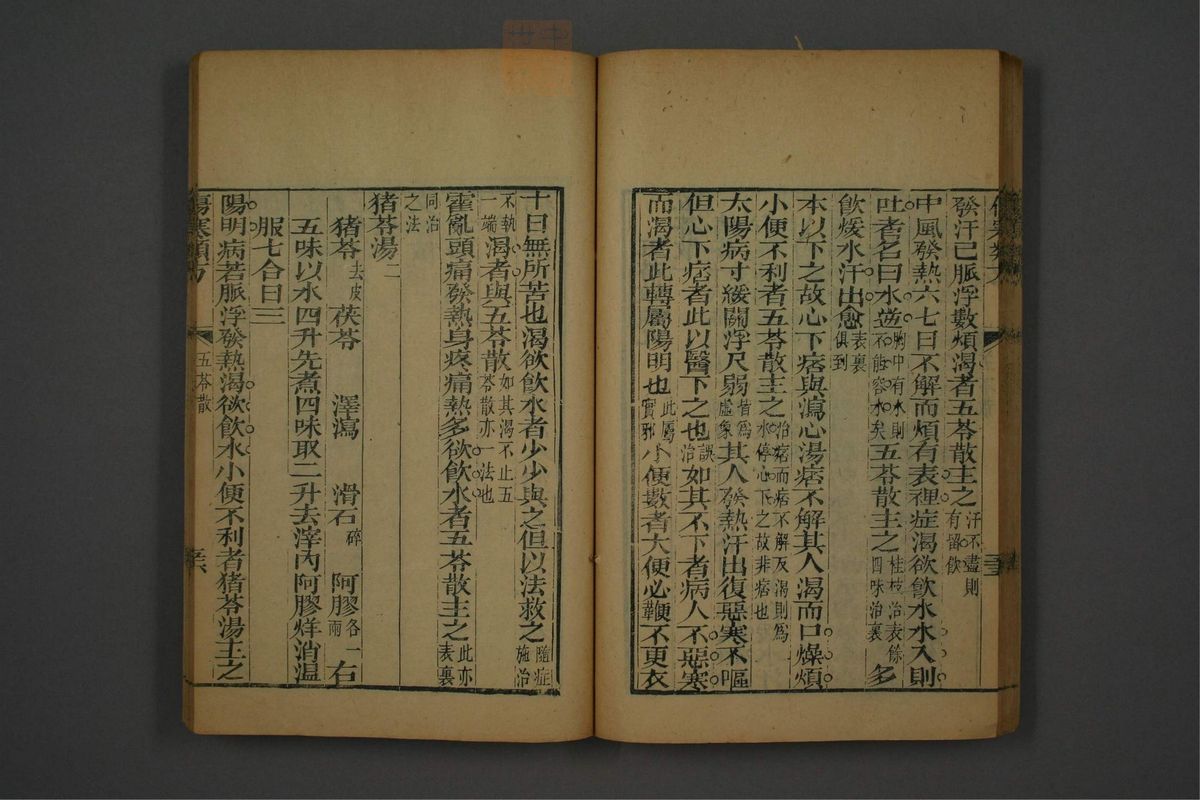 發汗已脈浮數煩渴者五苓散主之汗不盡則有留飲
中風發熱六七日不解而煩有表裡症渴欲飲水水入則
吐者名曰水逆胸中有水則不能容水矣五苓散主之桂枝治表餘四味治裏多
飲煖水汗出愈表裏俱到
本以下之故心下痞與瀉心湯痞不解其人渴而口燥煩
小便不利者五苓散主之治痞而痞不解及渴則為水停心下之故非痞也
太陽病寸緩關浮尺弱皆為虛象其人發熱汗出復惡寒不嘔
但心下痞者此以醫下之也誤治如其不下者病人不惡寒
而渴者此轉屬陽明也此屬實邪小便數者大便必鞕不更衣
十日無所苦也渴欲飲水者少少與之但以法救之隨症施治
不執一端渴者與五苓散如其渴不止五苓散亦一法也
霍亂頭痛發熱身疼痛熱多欲飲水者五苓散主之此亦表裏
同治之法
猪苓湯二
猪苓去皮 茯苓 澤瀉 滑石碎 阿膠各一兩 右
五味以水四升先煮四味取二升去滓內阿膠烊消溫
服七合日三
陽明病若脈浮發熱渴欲飲水小便不利者猪苓湯主之
傷寒類方
五苓散